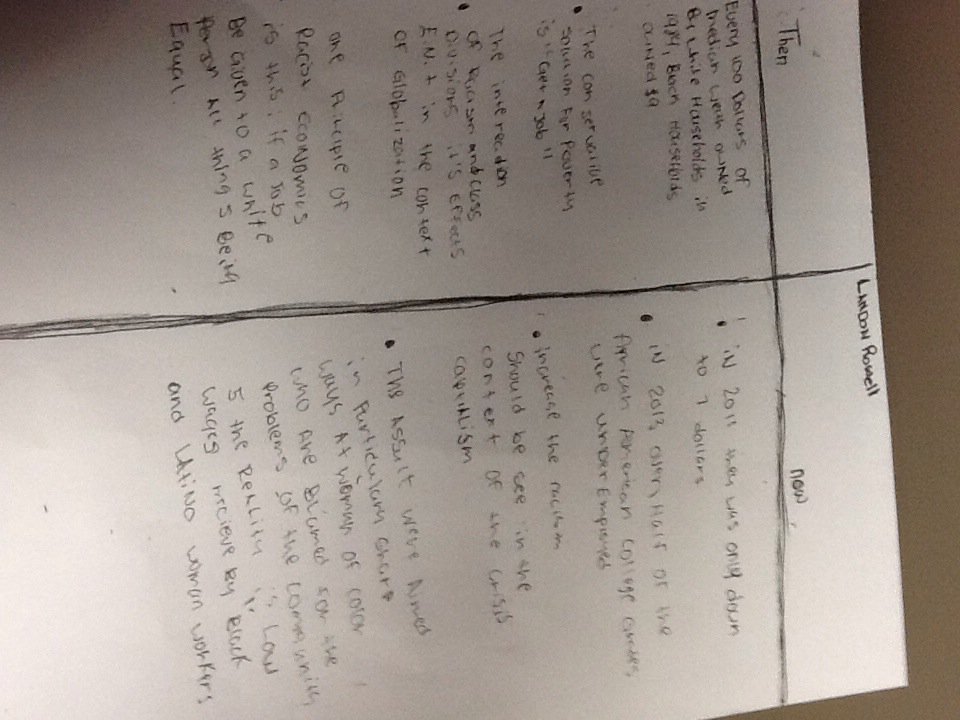 LANDON Rowell
Then
Every 100 Dollars of
median welth owned
By white Households in
1984, Black Households
owned $9
• The conservitive
solution for Poverty
is "Get a Job"
• The interection
of Racism and class
Divisions it's Effects
E.N.t in the context
of Globalization
one Principle of
Racist Economics
is this: if a Job
Be given to a white
Person ALL things Being
Equal.
now
• iN 2011 they was only down
to 7 dollars
• iN 2013, over Half of the
African American College
were underEmployed
• increase the racism
Should be see in the
context of the crisis
capitilism
• The Assult were Aimed
in Particulary sharp
ways At woman of color
who Are Blamed for the
Problems of the community
5 the Reality is Low
wages recieve by Black
and LAtiNo woman workers